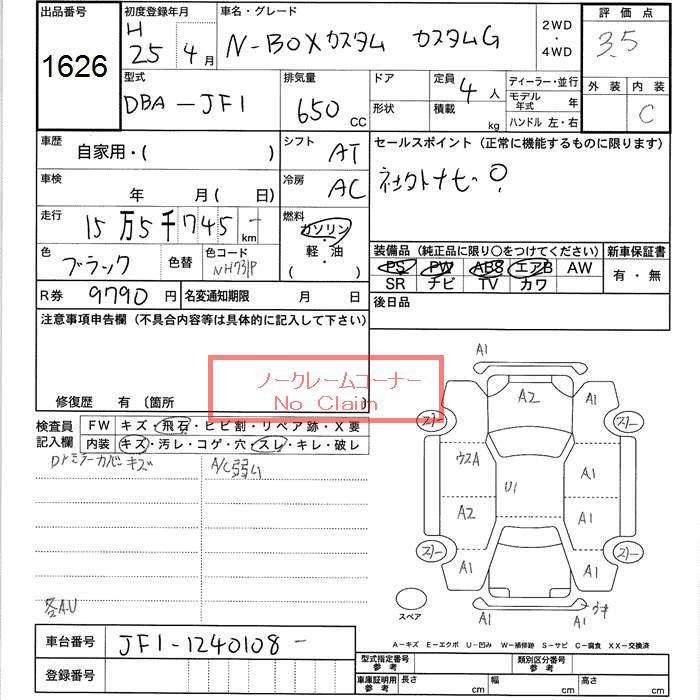 出品番号
1626
初度登録年月
H 25年 4月
車名・グレード
N-BOXカスタム カスタムG
2WD
・
4WD
評価点
3.5
外装 内装
C
型式
DBA-JF1
排気量
650 CC
ドア
形状
定員 4 人
積載 kg
ディーラー・並行
モデル年式 年
ハンドル 左・右
車歴
自家用・( )
シフト AT
セールスポイント(正常に機能するものに限ります)
車検
年 月( 日)
冷房 AC
走行
15万5千745 km
燃料
ガソリン
・
軽油
( )
色
ブラック
色替
色コード
NH731P
装備品(純正品に限り○をつけてください)
新車保証書
PS PW ABS エアB AW
SR チビ TV カワ
有・無
R券 9790円
名変通知期限 月 日
後日品
注意事項申告欄(不具合内容等は具体的に記入して下さい)
ノークレームコーナー
No Claim
修復歴 有 〔箇所
検査員
記入欄
FW キズ・飛石・ヒビ割・リペア跡・X要
内装 キズ・汚レ・コゲ・穴・スレ・キレ・破レ
Drミラーカバーキズ
A/C弱ム
各A.U
A1
A1
A2
A1
スリー
スリー
ウスA
A1
U1
A2
A1
スリー
スリー
A1
A1
A1
ウキ
A1
スペア
車台番号 JF1-1240108-
登録番号
A-キズ E-エクボ U-凹み W-補修跡 S-サビ C-腐食 XX-交換済
型式指定番号
参考
類別区分番号
参考
車庫証明用
参考
長さ cm
幅 cm
高さ cm